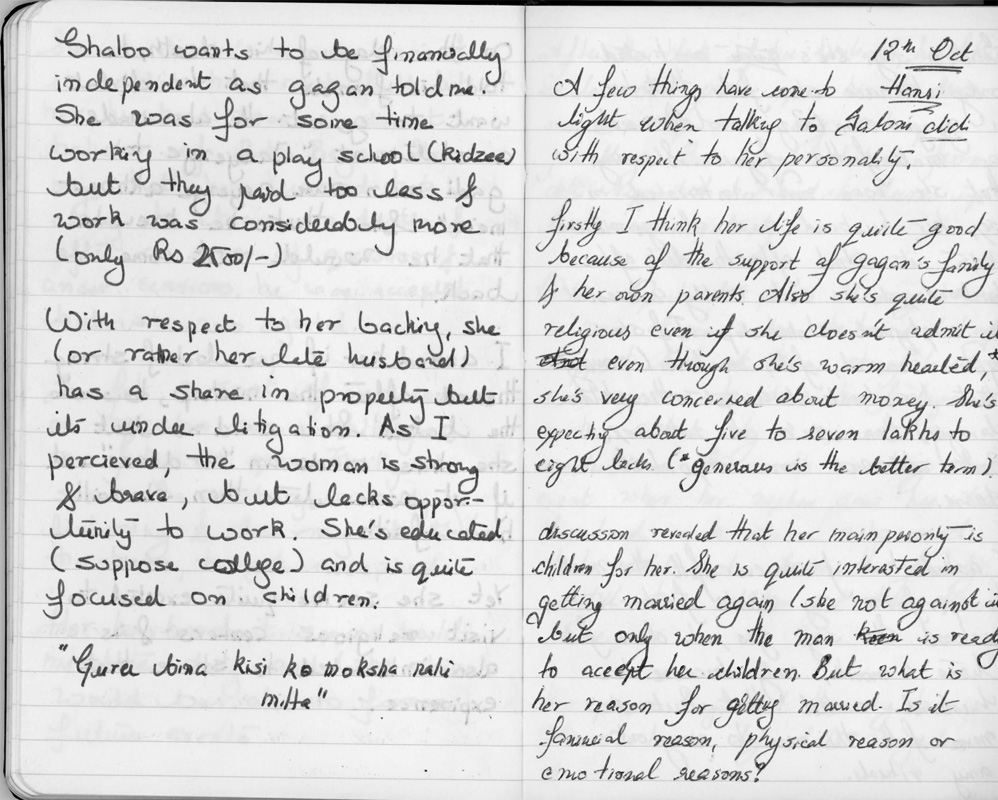 Shaloo wants to be financially
independent as gagan told me.
She was for some time
working in a play school (kidzee)
but they paid too less &
work was considerably more
(only Rs 2500/-)
With respect to her backing, she
(or rather her late husband)
has a share in property but
its under litigation. As I
percieved, the woman is strong
& brave, but lacks oppor-
tunity to work. She's educated
(suppose college) and is quite
focused on children.
"Guru bina kisi ko moksha nahi
milta"
12th Oct
Hansi
A few things have come to
light when talking to Saloni didi
with respect to her personality.
firstly I think her life is quite good
because of the support of gagan's family
& her own parents. Also she's quite
religious even if she doesn't admit it
even through she's warm hearted,*
she's very concerned about money. She's
expecting about five to seven lakhs to
eight lacks. (*generous is the better term)
discussion revealed that her main priority is
children for her. She is quite interested in
getting married again (she not against it)
but only when the man keen is ready
to accept her children. But what is
her reason for getting married. Is it
financial reason, physical reason or
emotional reasons?